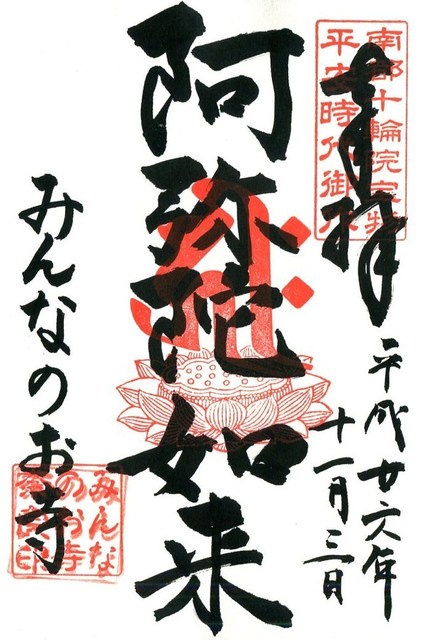 南都十輪院
平安時代御
奉拝
平成廿六年
十一月三日
阿弥陀如来
みんなのお寺
みんな
のお寺
印